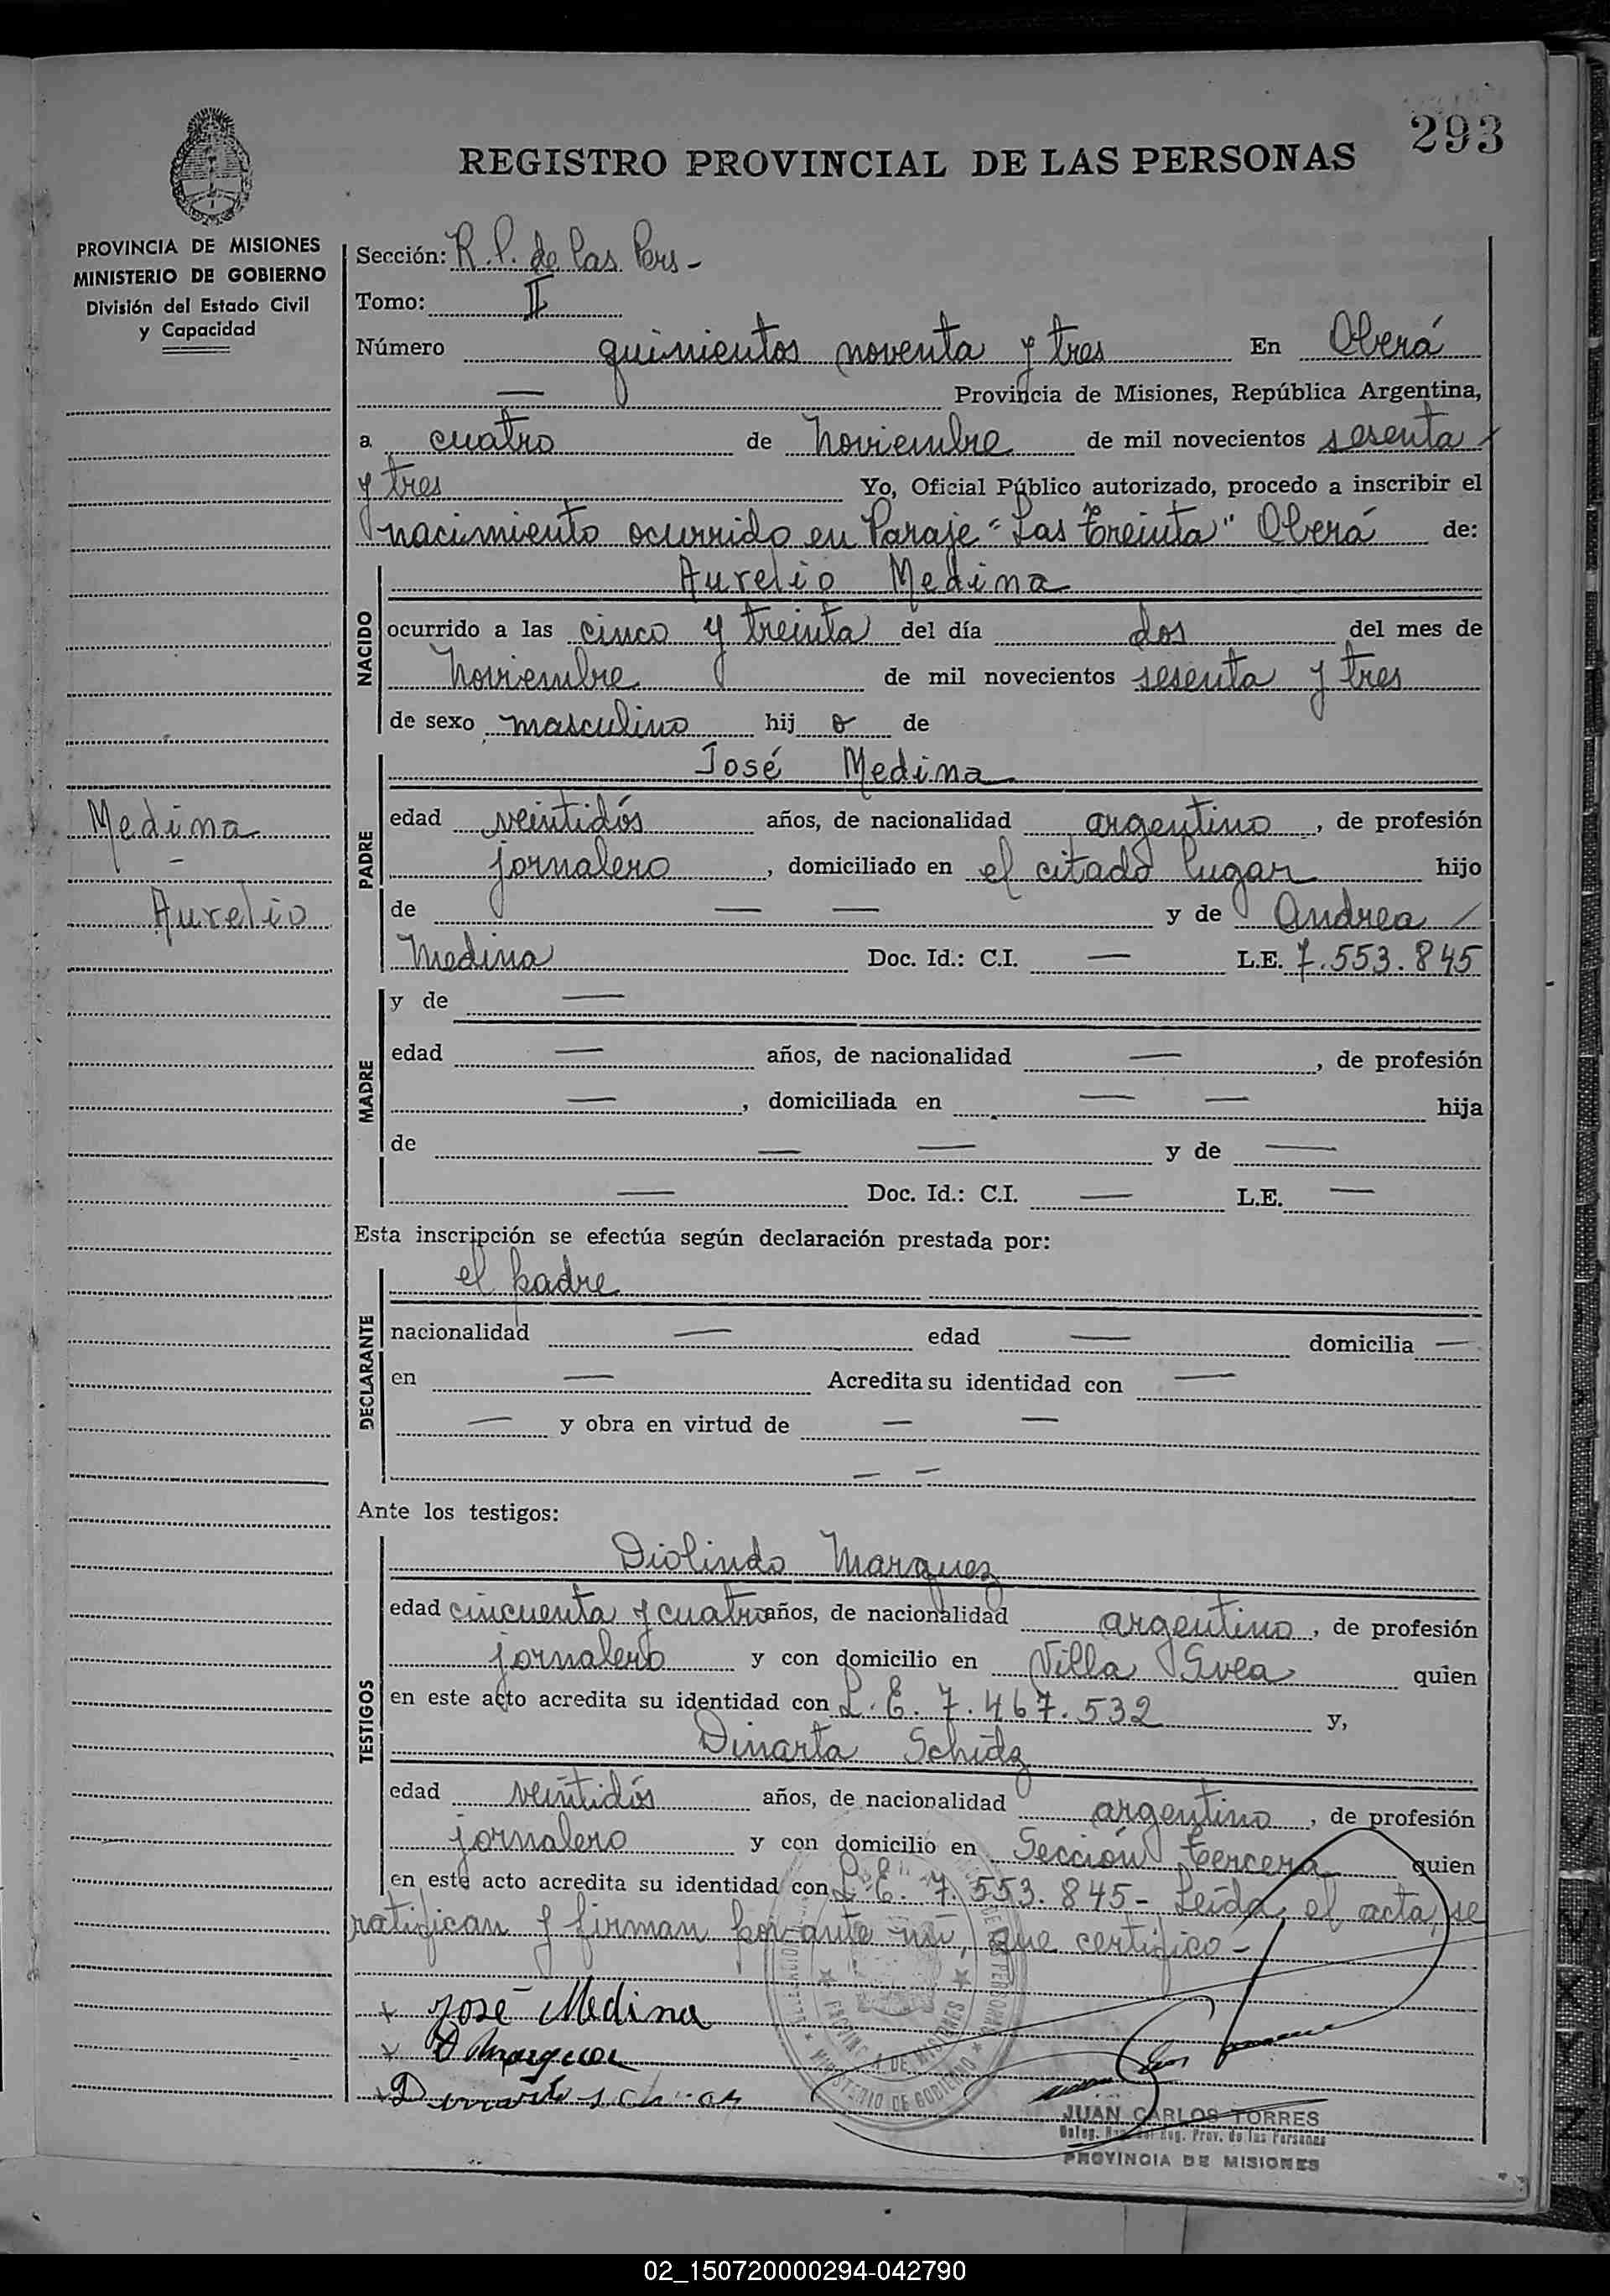 293
REGISTRO PROVINCIAL DE LAS PERSONAS
PROVINCIA DE MISIONES
MINISTERIO DE GOBIERNO
División del Estado Civil
y Capacidad
Medina
Aurelio
Sección: R. P. de las Pers -
Tomo: II
Número quinientos noventa y tres En Oberá
— Provincia de Misiones, República Argentina,
a cuatro de Noviembre de mil novecientos sesenta
y tres Yo, Oficial Público autorizado, procedo a inscribir el
nacimiento ocurrido en Paraje "Las Treinta" Oberá de:
NACIDO
Aurelio Medina
ocurrido a las cinco y treinta del día dos del mes de
Noviembre de mil novecientos sesenta y tres
de sexo masculino hij o de
PADRE
José Medina
edad veintidós años, de nacionalidad argentino, de profesión
jornalero, domiciliado en el citado lugar hijo
de — — y de Andrea
Medina Doc. Id.: C.I. — L.E. 7.553.845
MADRE
y de —
edad — años, de nacionalidad —, de profesión
—, domiciliada en — — hija
de — — y de —
— Doc. Id.: C.I. — L.E. —
Esta inscripción se efectúa según declaración prestada por:
DECLARANTE
el padre
nacionalidad — edad — domicilia —
en — Acredita su identidad con —
— y obra en virtud de — —
— —
Ante los testigos:
TESTIGOS
Diolindo Marquez
edad cincuenta y cuatro años, de nacionalidad argentino, de profesión
jornalero y con domicilio en Villa Svea quien
en este acto acredita su identidad con L. E. 7.467.532 y,
Dinarta Schidz
edad veintidós años, de nacionalidad argentino, de profesión
jornalero y con domicilio en Sección tercera quien
en este acto acredita su identidad con L. E. 7.553.845 - Leída el acta, se
ratifican y firman por ante mí, que certifico -
x José Medina
x D Marquez
x
PROVINCIA DE MISIONES
MINISTERIO DE GOBIERNO
JUAN CARLOS TORRES
Reg. Prov. de las Personas
PROVINCIA DE MISIONES
02_150720000294-042790